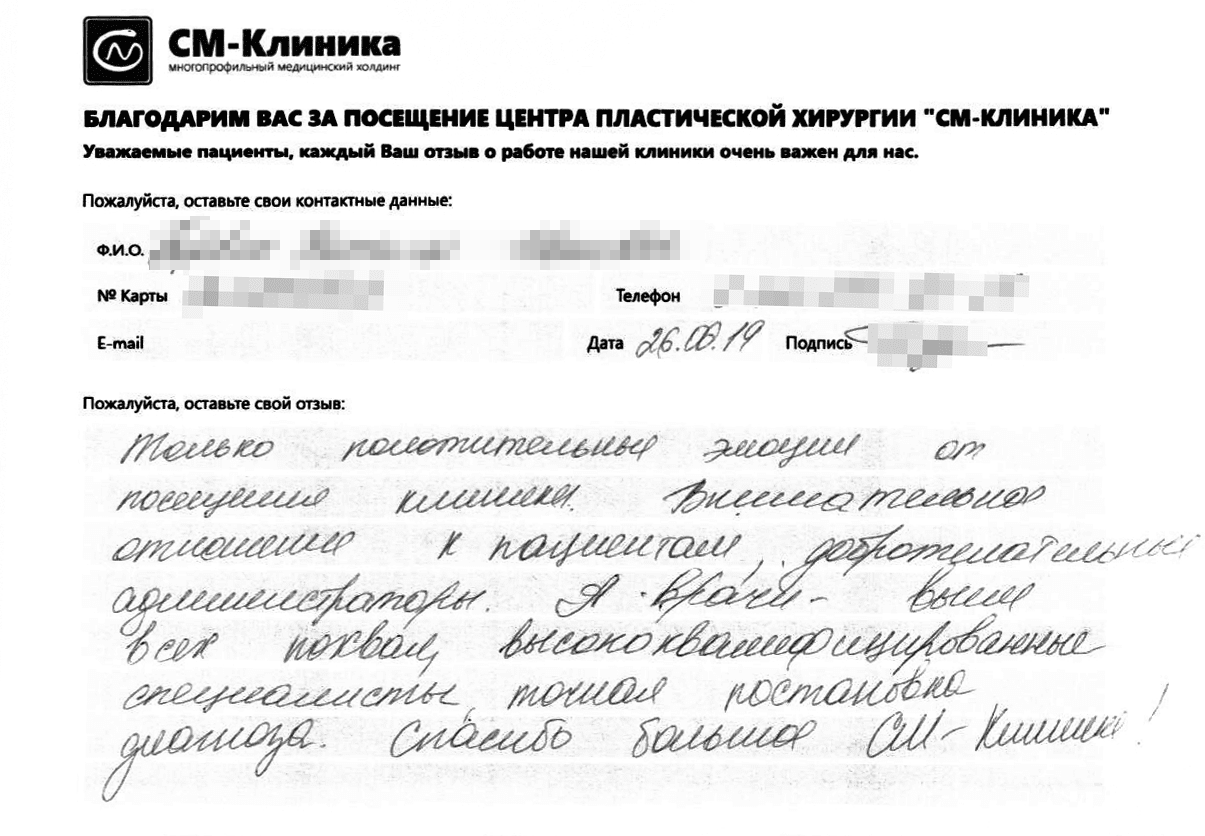 СМ-Клиника
многопрофильный медицинский холдинг
БЛАГОДАРИМ ВАС ЗА ПОСЕЩЕНИЕ ЦЕНТРА ПЛАСТИЧЕСКОЙ ХИРУРГИИ "СМ-КЛИНИКА"
Уважаемые пациенты, каждый Ваш отзыв о работе нашей клиники очень важен для нас.
Пожалуйста, оставьте свои контактные данные:
Ф.И.О.
№ Карты Телефон
E-mail Дата Подпись
Пожалуйста, оставьте свой отзыв:
Только положительные эмоции от
посещения клиники. Внимательное
отношение к пациентам, доброжелательные
администраторы. А врачи - выше
всех похвал, высококвалифицированные
специалисты, точная постановка
диагноза. Спасибо большое СМ-Клинике!